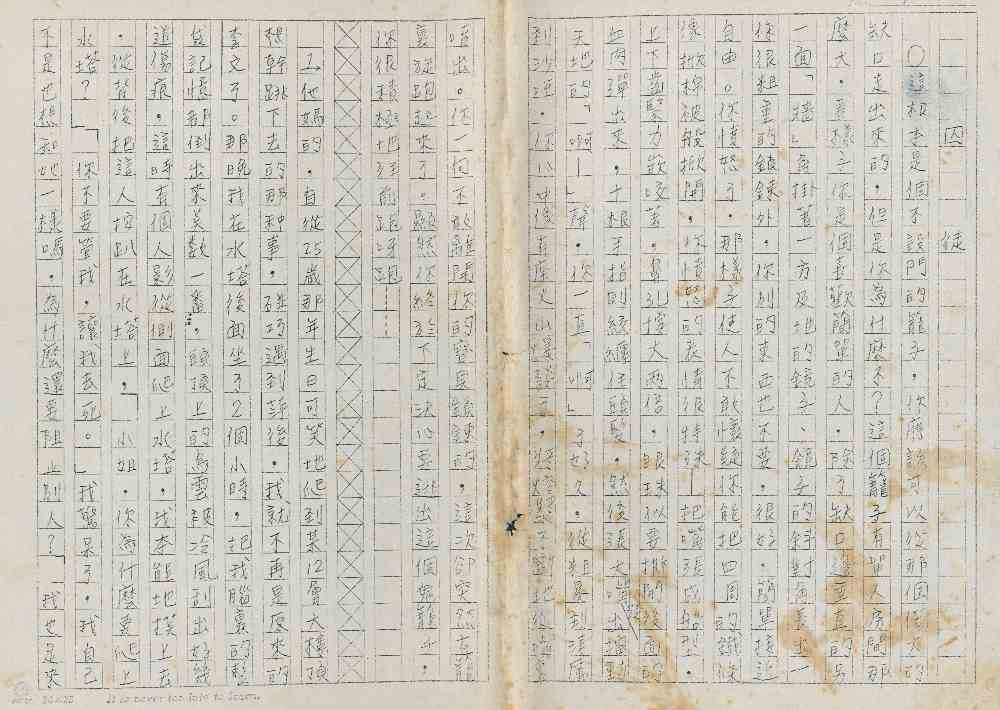 囚徒
○這根本是個不設門的籠子，你應該可以從那個很大的
缺口走出來的，但是你為什麼不？這個籠子有單人房間那
麼大，真樣子你是個喜歡簡單的人？除了缺口垂直的另
一面「牆」角掛著一方及地的鏡子、鏡子的斜對角畫出一
你很粗重的鎖鍊外，你別的東西也不要，很好，簡單接近
自由。你憤怒了，那樣子使人不敢懷疑你能把四周的鐵條
像撕棉被般撤開，你憤怒的表情很特殊—把嘴張成船型，
上下齒緊力啟咬著，鼻孔撐大兩倍，眼珠似要擠開後面的
血肉彈出來，十根手指則絞纏住頭髮，然後張大嘴巴撞動
天地的「啊—」聲，你一直「啊」了好久，從粗暴到淒厲
到沙啞，你心中像有座火山爆發了，
嘻出。你一向不敢離開你的寶貝鎖鍊的，這次卻突然在籠
裏疑跑起來了。顯然你終於下定決心要逃出這個鬼籠子，
你很積極地往前跑呀跑……
1.他媽的，自從25歲那年生日可笑地爬到某12層大樓頂
想幹跳下去的那种事，碰巧遇到薛後，我就不再是原來的
李文了。那晚我在水塔後面坐了2個小時，把我腦裏的整
袋記憶都倒出來笑數一番，頭頂上的烏雲被冷風刮出好幾
道傷痕，這時有個人影從側面爬上水塔，我本能地撲上去
，從背後把這人按趴在水塔上，「小姐，你為什麼要爬上
水塔？」「你不要管我，讓我去死。」我驚呆了，我自己
不是也想和她一樣嗎，為什麼還要阻止別人？「我也是來